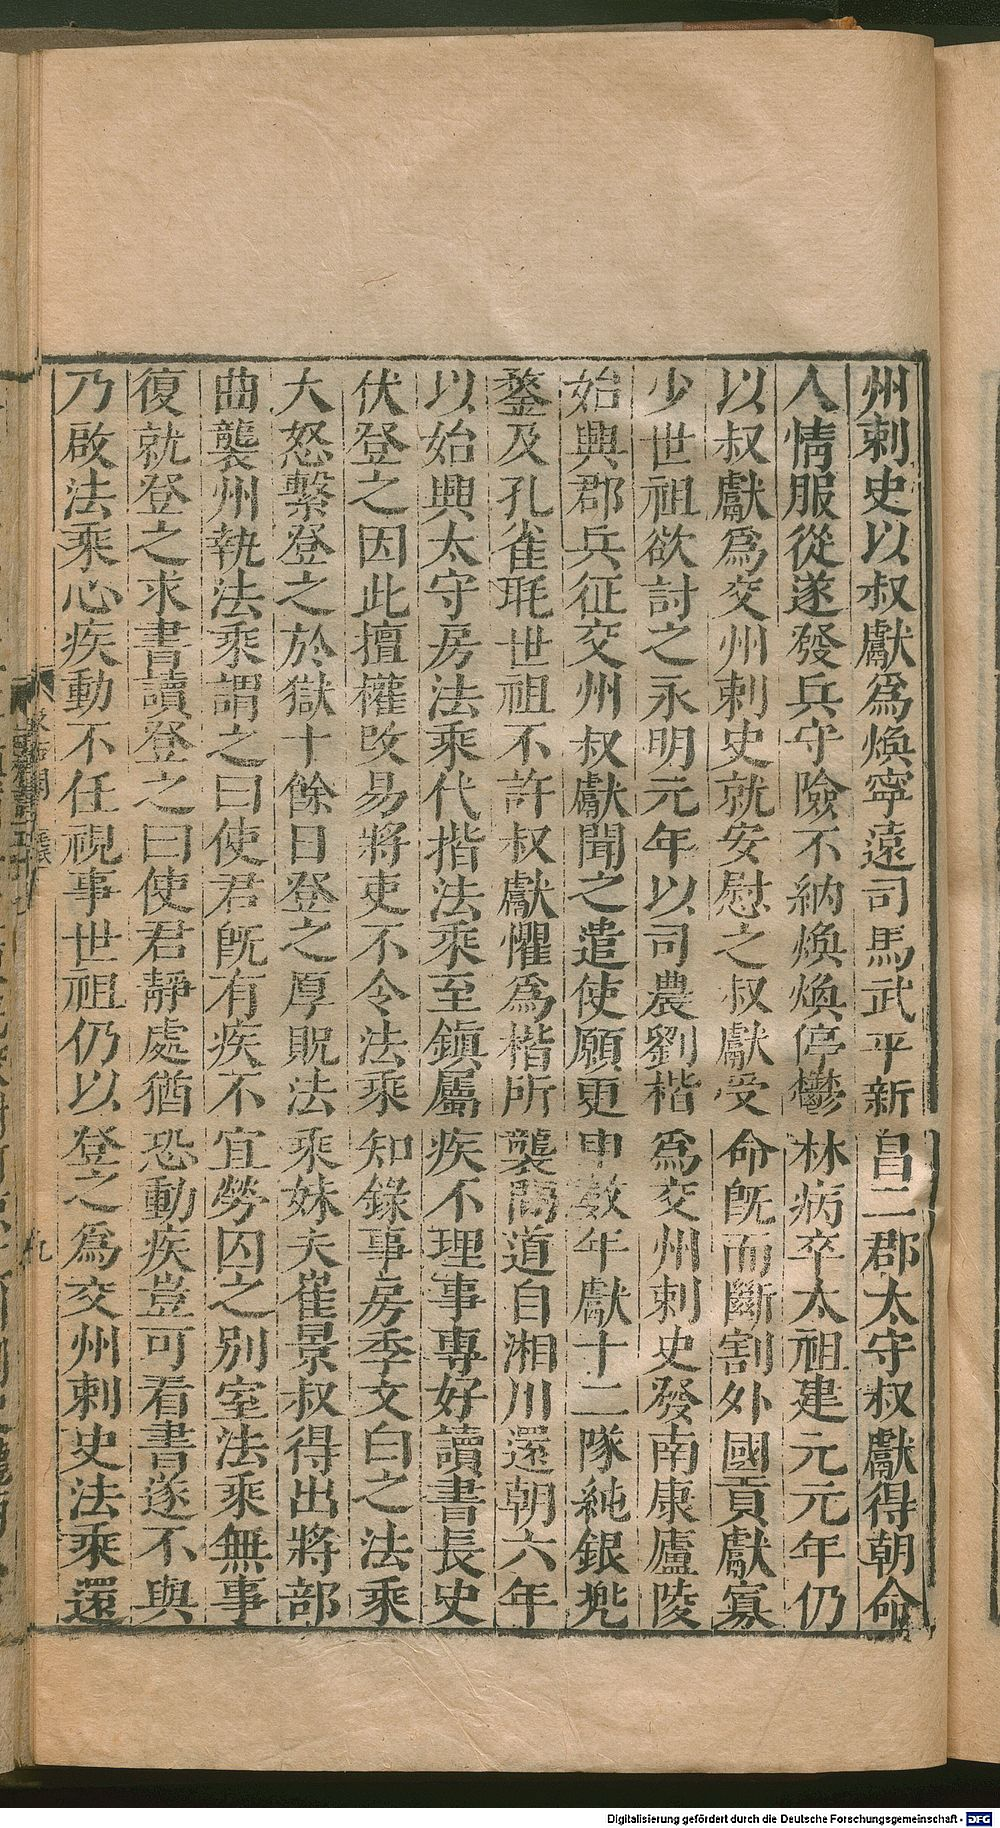 州刺史以叔獻爲煥寧遠司馬武平新昌二郡太守叔獻得朝命
人情服從遂發兵守險不納煥煥停鬱林病卒太祖建元元年仍
以叔獻爲交州刺史就安慰之叔獻受命旣而斷割外國貢獻寡
少世祖欲討之永明元年以司農劉楷爲交州刺史發南康廬陵
始興郡兵征交州叔獻聞之遣使願更申數年獻十二隊純銀兠
鍪及孔雀毦世祖不許叔獻懼爲楷所襲間道自湘川還朝六年
以始興太守房法乘代楷法乘至鎮屬疾不理事專好讀書長史
伏登之因此擅權改易將吏不令法乘知錄事房季文白之法乘
大怒繫登之於獄十餘日登之厚賂法乘妹夫崔景叔得出將部
曲襲州執法乘謂之曰使君旣有疾不宜勞囚之別室法乘無事
復就登之求書讀登之曰使君靜處猶恐動疾豈可看書遂不與
乃啟法乘心疾動不任視事世祖仍以登之爲交州刺史法乘還
九
Digitalisierung gefördert durch die Deutsche Forschungsgemeinschaft - DFG